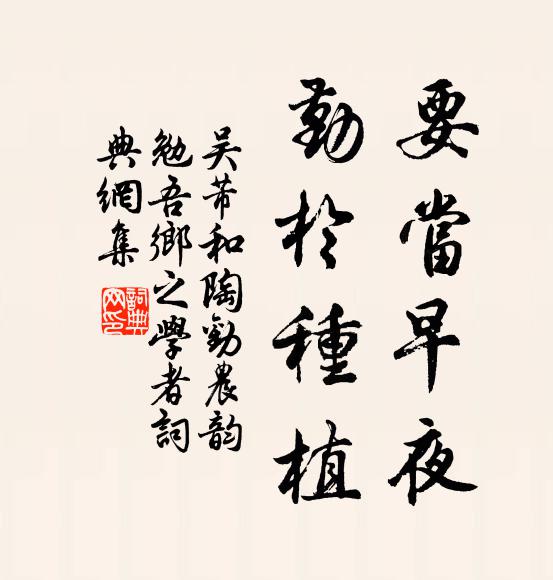 要當早夜
勤於種植
吳芾和陶勸農韵
勉吾鄉之學者詞
典網集
詞典
网印